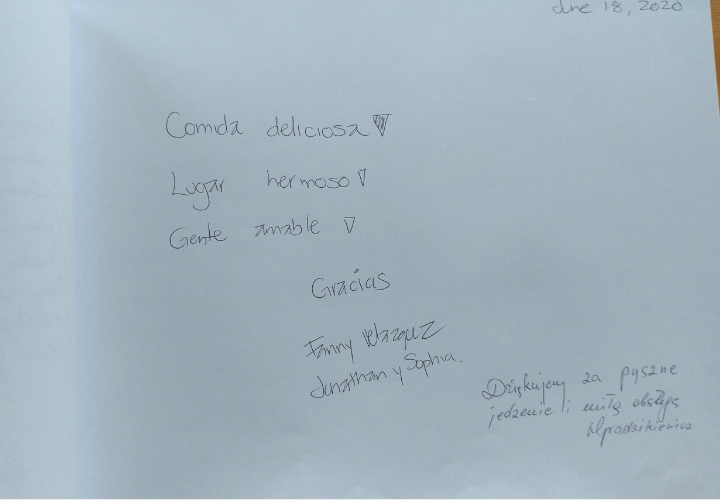 June 18, 2020
Comida deliciosa
Lugar hermoso
Gente amable
Gracias
Fanny Velazquez
Jonathan y Sophia.
Dziękujemy za pyszne
jedzenie i miłą obsługę